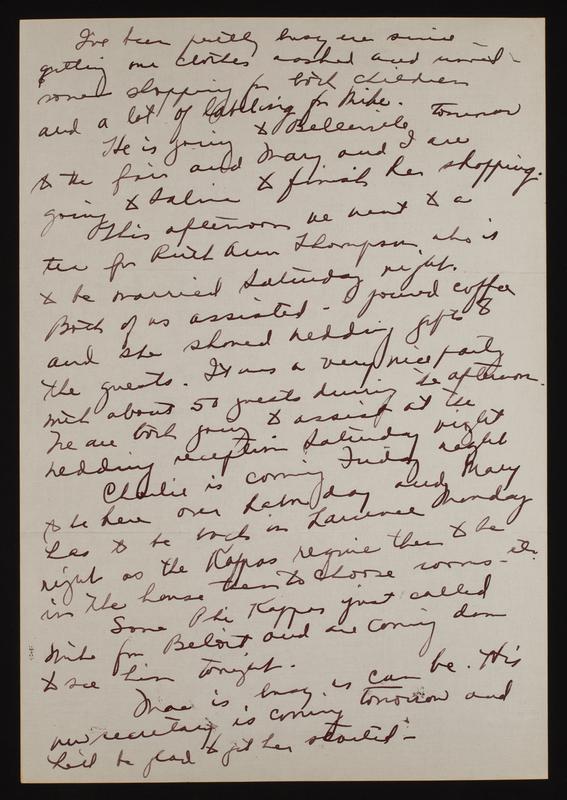 I've been pretty busy ever since
getting our clothes washed and ironed -
some shopping for both children
and a lot of labeling for Mike.
He is going to Belleville tomorrow
to the fair and Mary and I are
going to Salina to finish her shopping.
This afternoon we went to a
tea for Ruth Ann Thompson, who is
to be married Saturday night.
Both of us assisted - I poured coffee
and she showed wedding gifts to
the guests. It was a very nice party
with about 50 guests during the afternoon.
We are both going to assist at the
wedding reception Saturday night
Charlie is coming Friday night
to be here over Labor day and Mary
has to be back in Lawrence Monday
night as the Kappas require them to be
in the house then to choose rooms - etc.
Some Phi Kappas just called
Mike from Beloit and are coming down
to see him tonight.
Mac is busy as can be. His
new secretary is coming tomorrow and
he'll be glad to get her started -